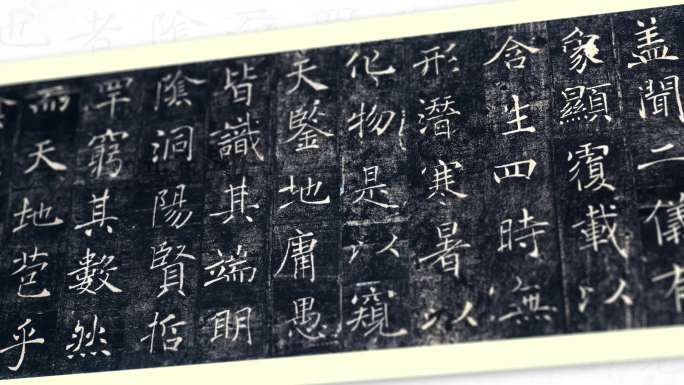 盖聞二儀有
象顯覆載以
含生四時無
形潛寒暑以
化物是以窺
天鑒地庸愚
皆識其端明
陰洞陽賢哲
罕窮其數然
而天地苞乎